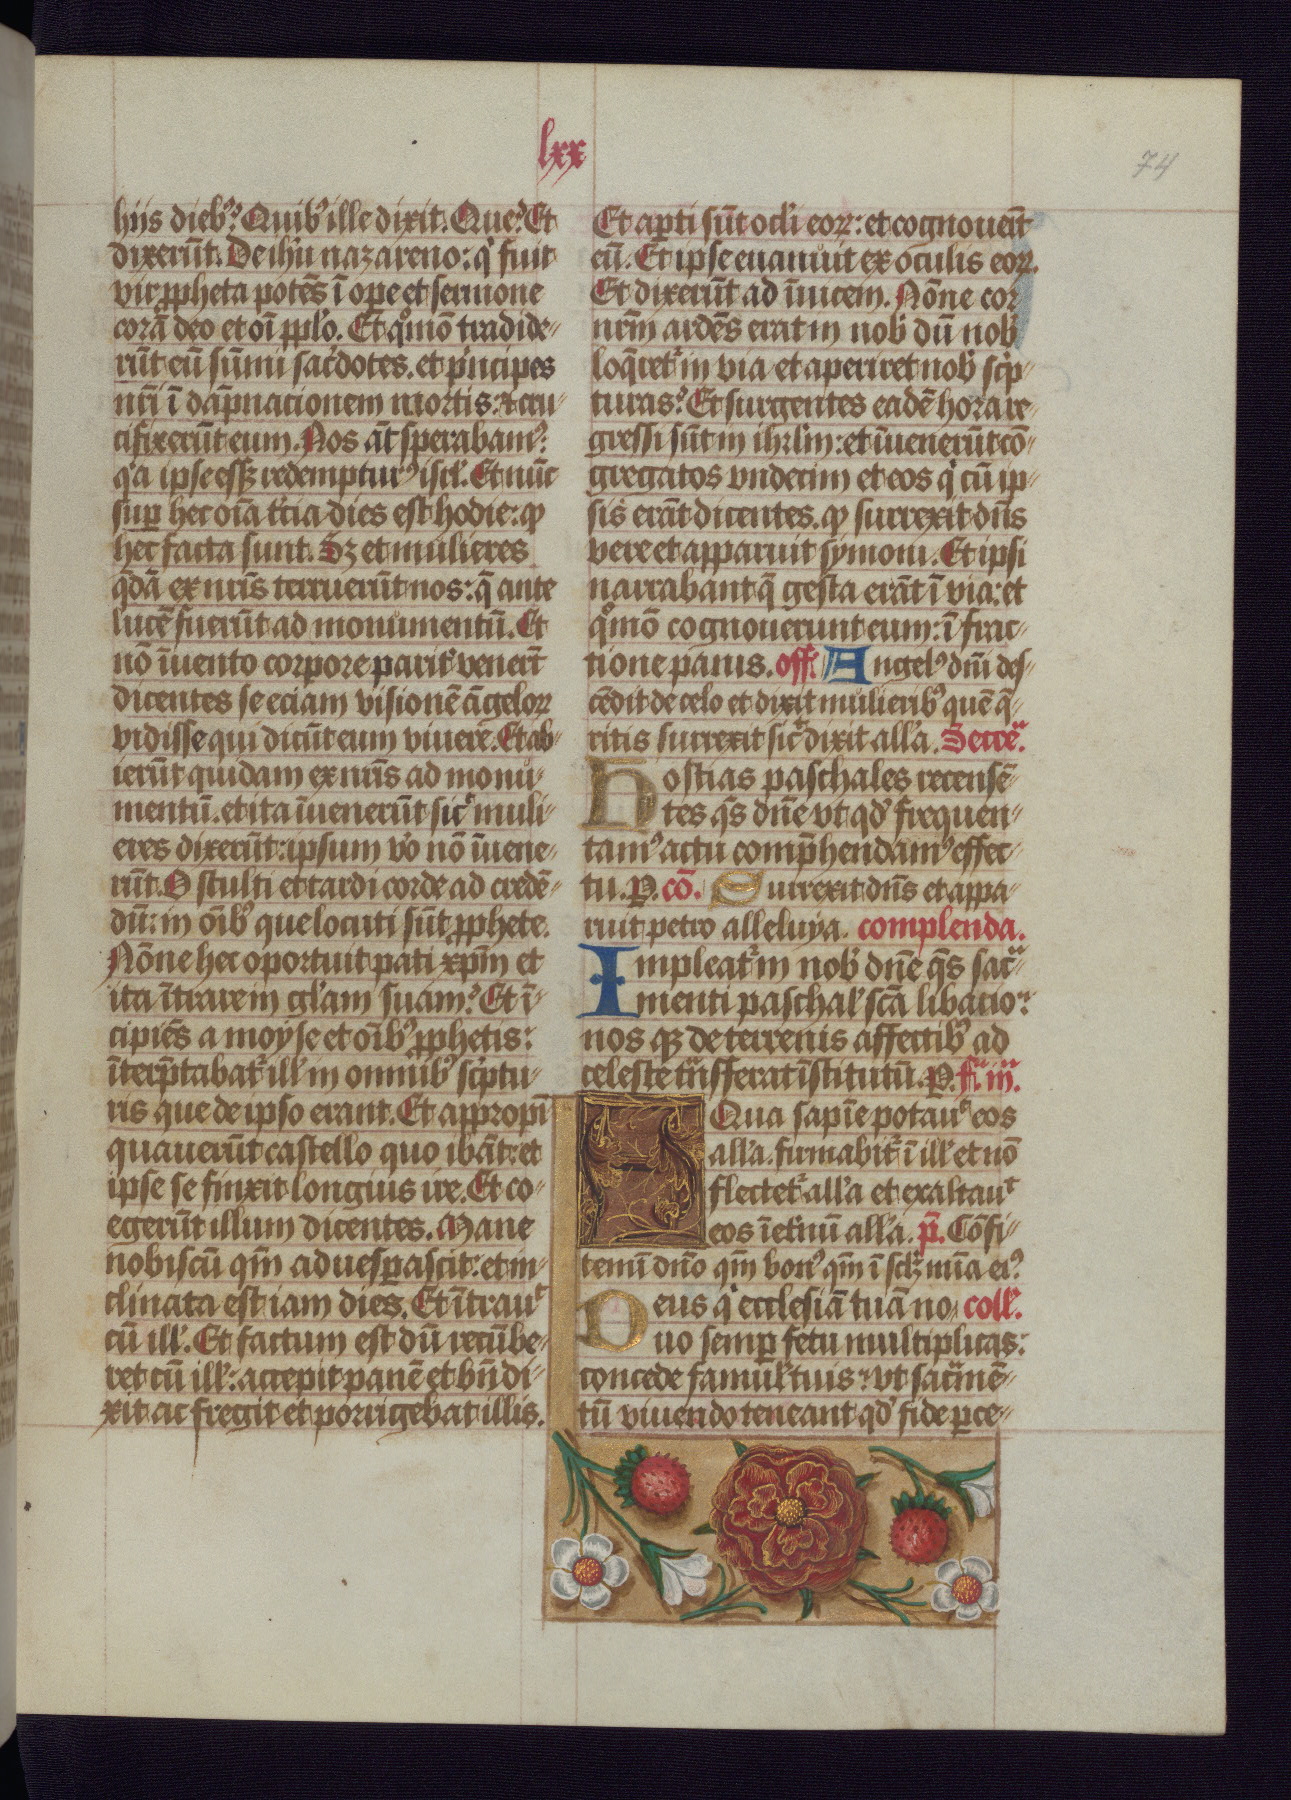 lxx
74
hiis dieb᷒? Quib᷒ ille dixit. Que? Et
dixerūt. De ihū nazareno: q̇ fuit
vir ꝓpheta potēs ī ope et sermone
corā deo et oī ppl̓o. Et qͦmō tradide-
rūt eū sūmi sac̓dotes. et p̓ncipes
nr̄i ī dāpnacionem mortis: ⁊ cru-
cifixerūt eum. Nos āt sperabam᷒:
q̓a ipse ess; redemptur᷒ isrl̓. Et nūc
sup̱ hec oīa t̓cia dies est hodie: qꝫ
hec facta sunt. Sꝫ et mulieres
q̄dā ex nr̄is terruerūt nos: q̄ ante
lucē fuerūt ad monumentū. Et
nō īuento corpore parit̓ venert̄
dicentes se eciam visionē āgeloꝝ
vidisse qui dicūt eum viuere. Et ab-
ierūt quidam ex nr̄is ad monu-
mentū. et ita īuenerūt sic̓ muli-
eres dixerūt: ipsum v̓o nō īuene-
rūt. O stulti et tardi corde ad credē-
dū: in oīb᷒ que locuti sūt ꝓphete.
Nōne hec oportuit pati xp̄m et
ita ītrare in gl̓am suam? Et ī-
cipiēs a moyse et oīb᷒ ꝓphetis:
īterp̄tabat᷑ ill̓ in omnib᷒ sc̓ptu-
ris que de ipso erant. Et appropī
quauerūt castello quo ibāt: et
ipse se finxit longius ire. Et co-
egerūt illum dicentes. Mane
nobiscū qm̄ aduesꝑascit: et in-
clinata est iam dies. Et ītrauᵗ
cū ill̓. Et factum est dū recūbe-
ret cū ill̓: accepit panē et bn̄di-
xit ac fregit et porrigebat illis.
Et aꝑti sūt ocl̓i eoꝝ: et cognouert̄
eū. Et ipse euanuit ex oculis eoꝝ.
Et dixerūt ad īuicem. Nōne cor
nr̄m ardēs erat in nob̓ dū nob̓
loq̄ret᷑ in via et aperiret nob̓ sc̓p-
turas? Et surgentes eadē hora re-
gressi sūt in ihrl̓m: et īuenerūt cō-
gregatos vndecim et eos q̇ cū ip-
sis erāt dicentes. qꝫ surrexit dn̄s
vere et apparuit symoni. Et ipsi
narrabant q̄ gesta erāt ī via: et
qͦmō cognouerunt eum: ī frac-
tione panis. off̓. Angel᷒ dn̄i des-
cēdit de celo et dixit mulierib᷒ quē q̄-
ritis surrexit sic̓ dixit all̓a. Secre͂.
Hostias paschales recensē-
tes q̄s dn̄e vt qd̓ frequen-
tam᷒ actu comp̄hendam᷒ effec-
tu. P. cō. Surrexit dn̄s et appa-
ruit petro alleluya. complenda.
Impleat᷑ in nob̓ dn̄e q̄s sac͂-
menti paschal̓ sc̄a libacio:
nos qꝫ de terrenis affectib᷒ ad
celeste tn͂sferat īstitutū. P. f͂ iij͂.
AQua sapīe potauᵗ eos
all̓a. firmabit᷑ ī ill̓ et nō
flectet᷑ all̓a et exaltauᵗ
eos īet̓nū all̓a. p̄. Cōfi-
temī dn̄o qm̄ bon᷒ qm̄ ī sclꝫ mīa ei᷒?
Deus q̇ ecclesiā tuā no- coll̓.
uo semꝑ fetu multiplicas:
concede famul̓ tuis: vt sac͂mē-
tū viuendo teneant qd̓ fide ꝑce-